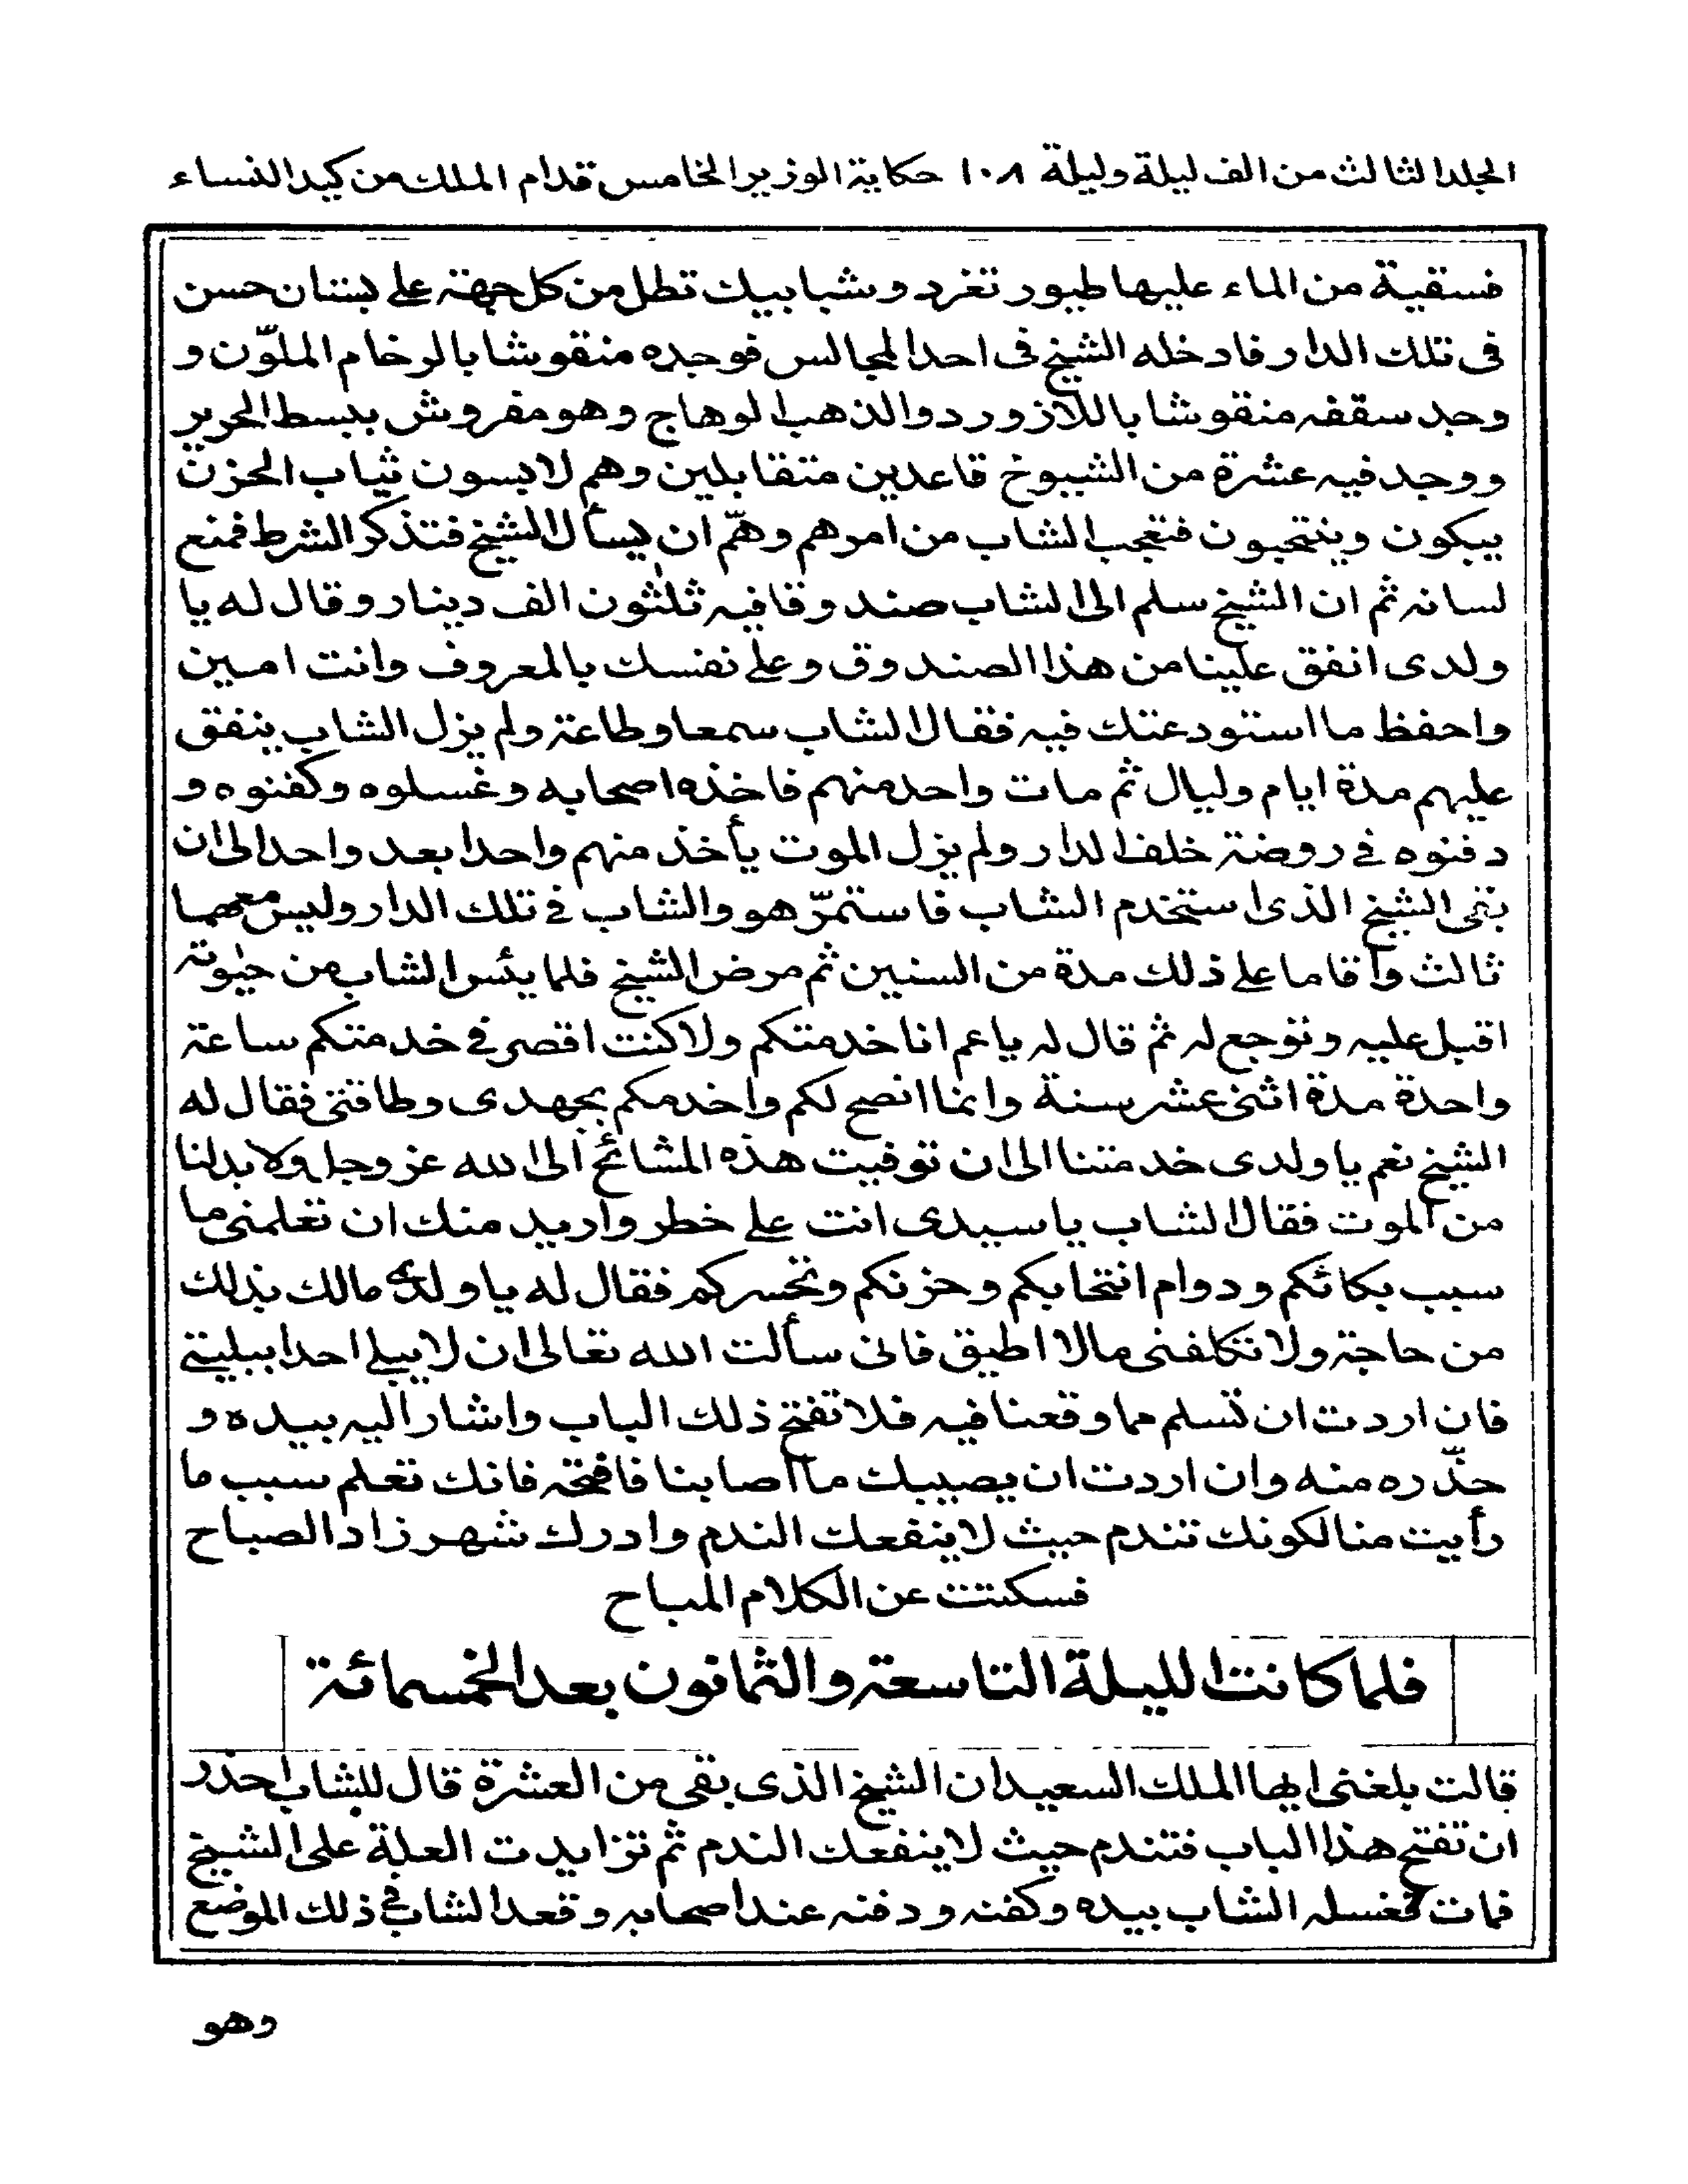 المجلد الثالث من الف ليلة وليلة ١٠٨ حكاية الوزير الخامس قدام الملك من كيد النساء
فسقية من الماء عليها طيور تغرد وشبابيك تطل من كل جهة على بستان حسن
فى تلك الدار فادخله الشيخ فى احد المجالس فوجده منقوشا بالرخام الملوّن و
وجد سقفه منقوشا باللازورد والذهب الوهاج وهو مفروش ببسط الحرير
ووجد فيه عشرة من الشيوخ قاعدين متقابلين وهم لابسون ثياب الحزن
يبكون وينتحبون فتعجب الشاب من امرهم وهمّ ان يسأل الشيخ فتذكر الشرط فمنع
لسانه ثم ان الشيخ سلم الى الشاب صندوقا فيه ثلٰثون الف دينار وقال له يا
ولدى انفق علينا من هذا الصندوق وعلى نفسك بالمعروف وانت امين
واحفظ ما استودعتك فيه فقال الشاب سمعا وطاعة ولم يزل الشاب ينفق
عليهم مدة ايام وليال ثم مات واحد منهم فاخذه اصحابه وغسلوه وكفنوه و
دفنوه فى روضة خلف الدار ولم يزل الموت يأخذ منهم واحدا بعد واحد الى ان
بقى الشيخ الذى استخدم الشاب فاستمرّ هو والشاب فى تلك الدار وليس معهما
ثالث واقاما على ذلك مدة من السنين ثم مرض الشيخ فلما يئس الشاب من حيٰوته
اقبل عليه وتوجع له ثم قال له يا عم انا خدمتكم ولا كنت اقصر فى خدمتكم ساعة
واحدة مدة اثنى عشر سنة وانما انصح لكم واخدمكم بجهدى وطاقتى فقال له
الشيخ نعم يا ولدى خدمتنا الى ان توفيت هذه المشائخ الى الله عز وجل ولا بد لنا
من الموت فقال الشاب يا سيدى انت على خطر واريد منك ان تعلمنى ما
سبب بكائكم ودوام انتحابكم وحزنكم وتحسركم فقال له يا ولدى مالك بذلك
من حاجة ولا تكلفنى مالا اطيق فانى سألت الله تعالى ان لا يبلى احدا ببليتى
فان اردت ان تسلم مما وقعنا فيه فلا تفتح ذلك الباب واشار اليه بيده و
حذّره منه وان اردت ان يصيبك ما اصابنا فافتحه فانك تعلم سبب ما
رأيت منا لكونك تندم حيث لا ينفعك الندم وادرك شهرزاد الصباح
فسكتت عن الكلام المباح
فلما كانت الليلة التاسعة والثمانون بعد الخمسمائة
قالت بلغنى ايها الملك السعيد ان الشيخ الذى بقى من العشرة قال للشاب احذر
ان تفتح هذا الباب فتندم حيث لا ينفعك الندم ثم تزايدت العلة على الشيخ
فمات فغسله الشاب بيده وكفنه ودفنه عند اصحابه وقعد الشاب فى ذلك الموضع
وهو